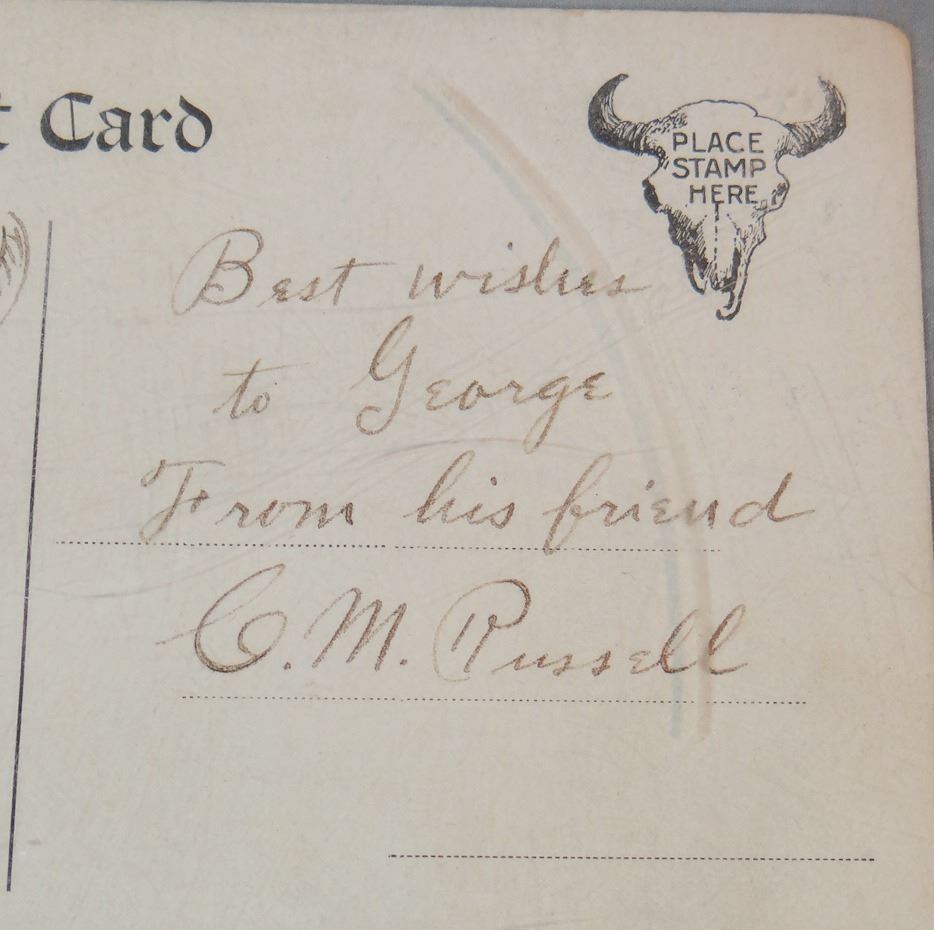 Card
PLACE
STAMP
HERE
Best wishes
to George
From his friend
C. M. Russell